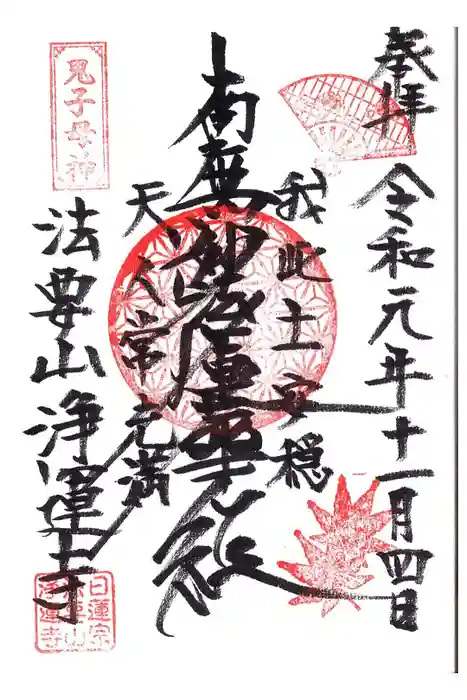 奉拝
令和元年十一月四日
我此土安穏
南無妙法蓮華経
天人常充満
鬼子母神
法要山 浄運寺
日蓮宗
法要山
浄運寺